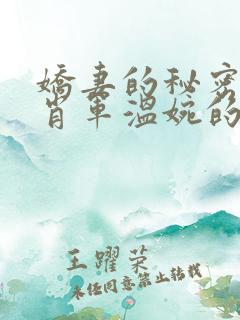 嬌妻的秘密
肖軍溫婉的
王躍榮
未经同意禁止转载